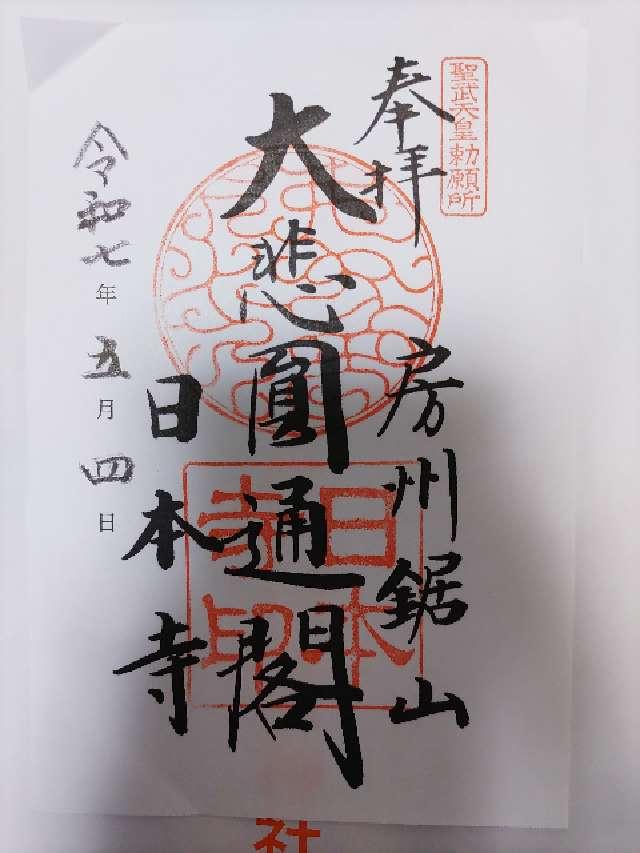 聖武天皇勅願所
奉拝
房州鋸山
大悲圓通閣
日本寺
日本寺印
令和七年五月四日
社